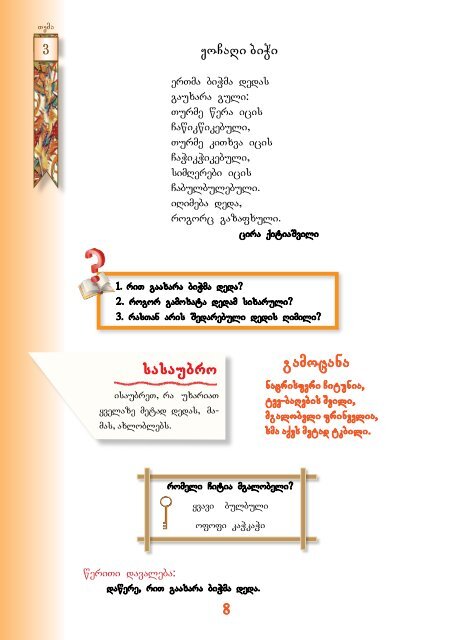 თემა
3
ყოჩაღი ბიჭი
ერთმა ბიჭმა დედას
გაუხარა გული:
თურმე წერა იცის
ჩაწიკწიკებული,
თურმე კითხვა იცის
ჩაჭიკჭიკებული,
სიმღერები იცის
ჩაბულბულებული.
იღიმება დედა,
როგორც გაზაფხული.
ცირა ქიტიაშვილი
?
1. რით გაახარა ბიჭმა დედა?
2. როგორ გამოხატა დედამ სიხარული?
3. რასთან არის შედარებული დედის ღიმილი?
სასაუბრო
ისაუბრეთ, რა უხარიათ
ყველაზე მეტად დედას, მა-
მას, ახლობლებს.
გამოცანა
ნაცრისფერი ჩიტუნია,
ტყე-ბაღების შვილი,
მგალობელი ფრინველია,
ხმა აქვს მეტად ტკბილი.
რომელი ჩიტია მგალობელი?
ყვავი ბულბული
ოფოფი კაჭკაჭი
წერითი დავალება:
დაწერე, რით გაახარა ბიჭმა დედა.
8